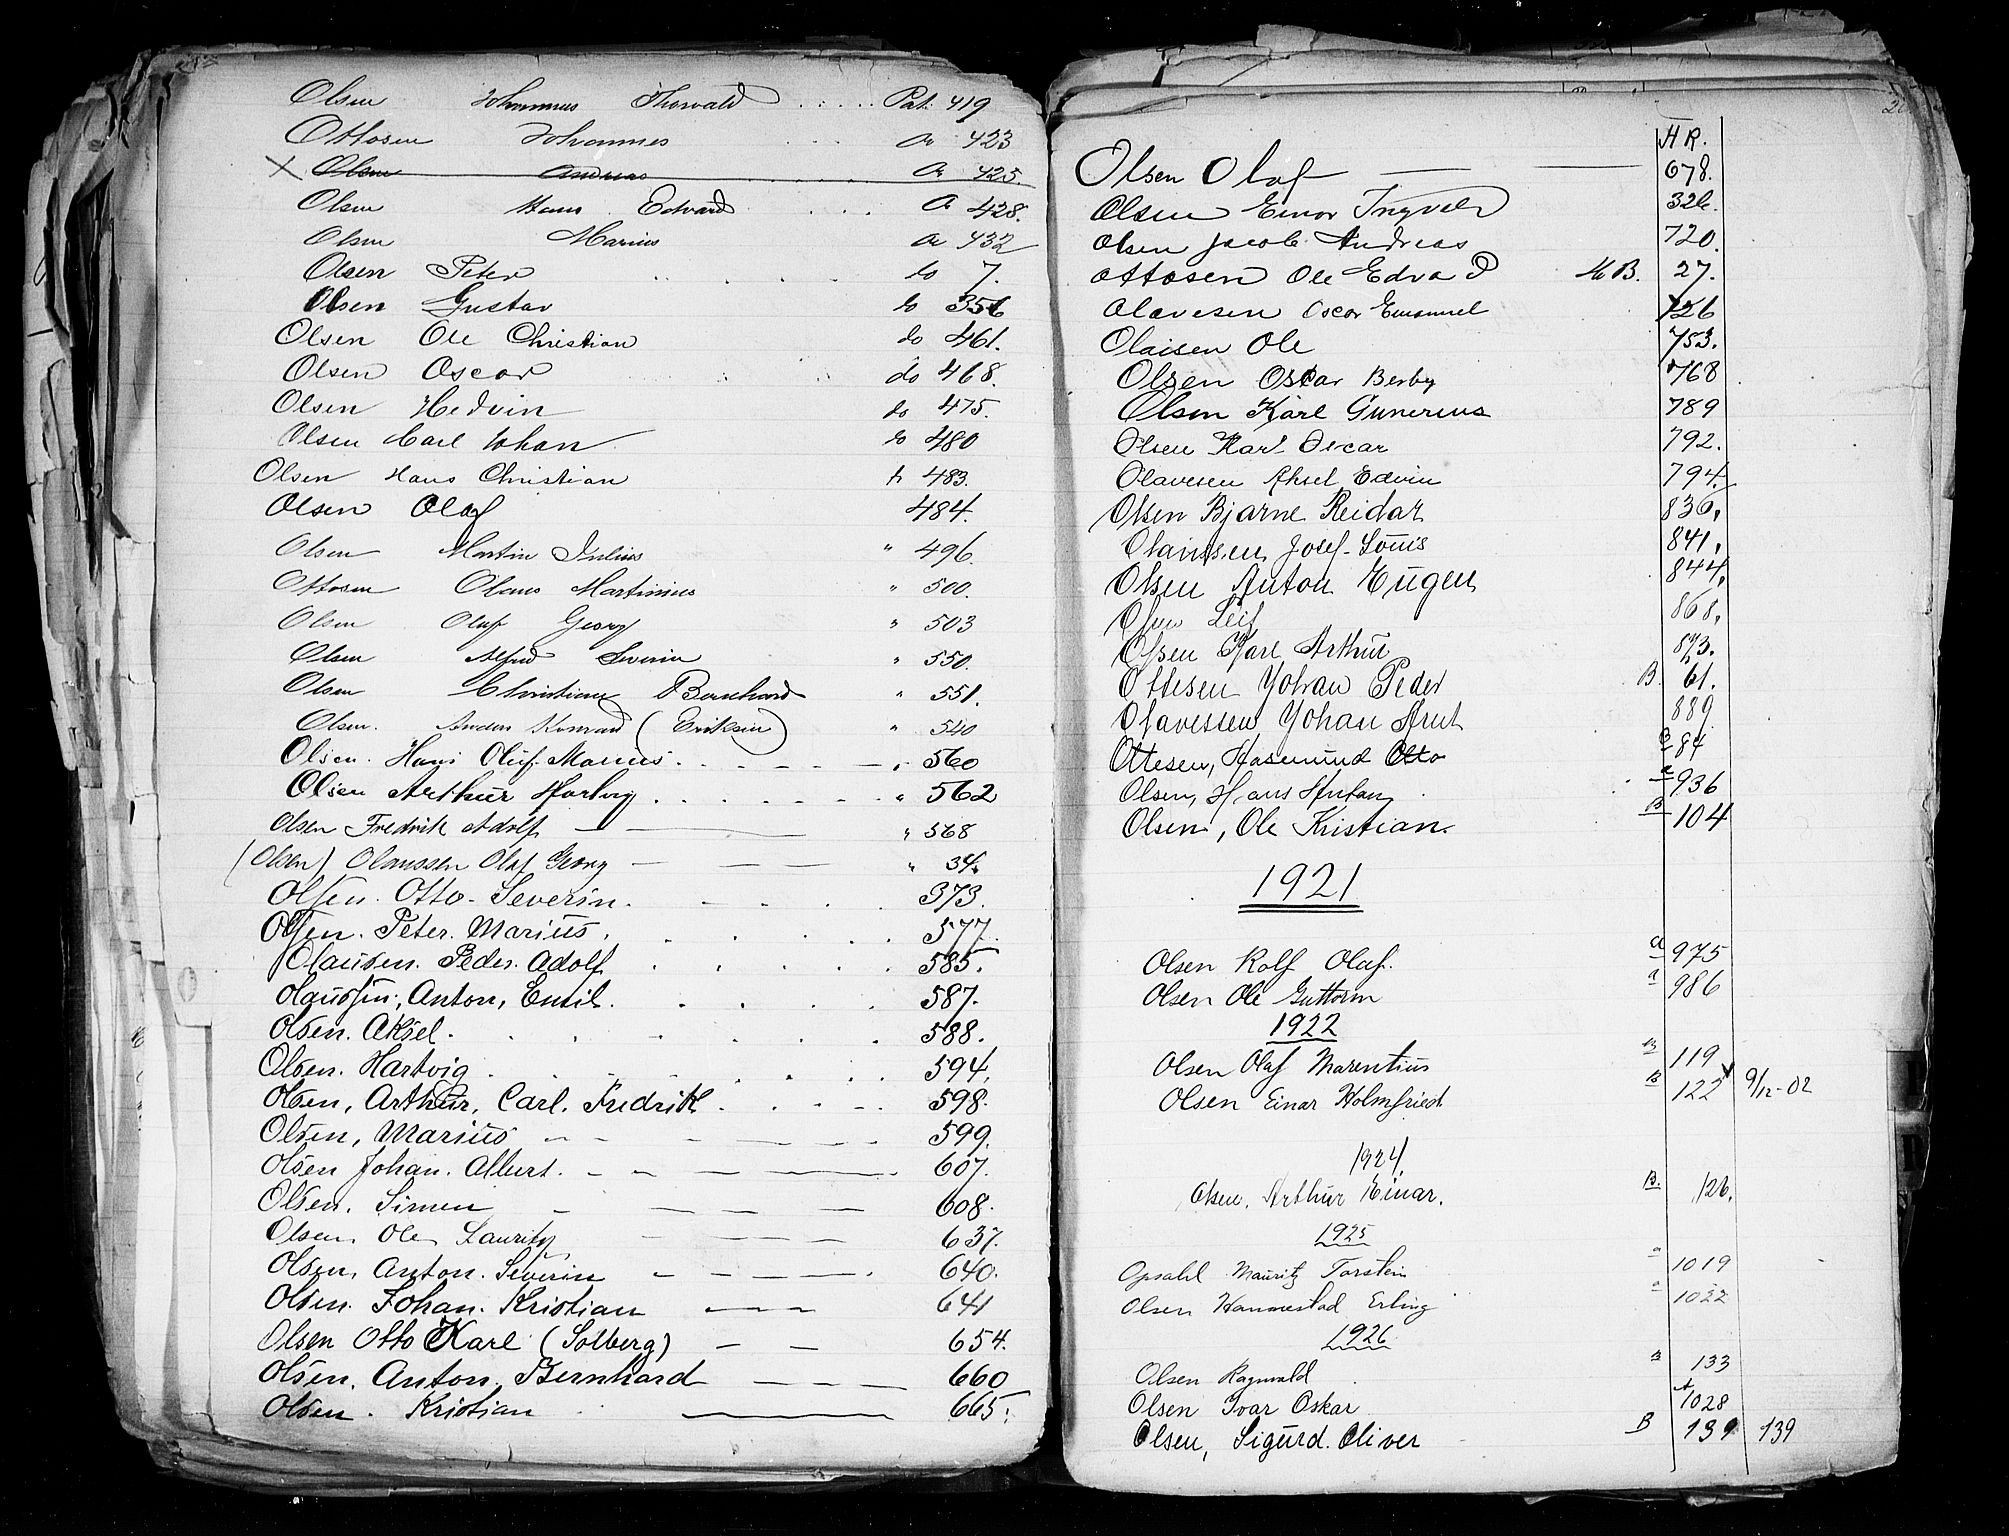 Olsen Johannes Thorvald . . . . Pat. 419
Ottosen Johannes . . . 423
X Olsen Andreas 425.
Olsen Hans Edvard . . . . 428.
Olsen Marius 432
Olsen Peter . . . do 7.
Olsen Gustav do 356
Olsen Ole Christian do 461.
Olsen Oscar do 468.
Olsen Hedvin do 475.
Olsen Carl Johan do 480
Olsen Hans Christian 483.
Olsen Olaf 484.
Olsen Martin Julius " 496.
Ottosen Olaus Martinius " 500.
Olsen Oluf Georg " 503
Olsen Alfred Severin " 550.
Olsen Christian Bernhard " 551.
Olsen. Anders Konrad (Eriksen) " 540
Olsen. Hans Oluf Marius. - - - - " 560
Olsen Arthur Hartvig . . . . " 562
Olsen Fredrik Adolf — — " 568
(Olsen) Olaussen Olaf Georg — — — " 34.
Olsen. Otto - Severin. - - . . 373.
Olsen. Peter. Marius. . . . . . 577.
Olausen. Peder. Adolf . . . . . 585.
Olaussen, Anton, Emil. . . . . 587.
Olsen. Aksel. . . . . . 588.
Olsen. Hartvig . . . . . . 594.
Olsen, Arthur, Carl. Fredrik . . - - 598.
Olsen, Marius - - - — — 599.
Olsen Johan. Albert. - - — — — 607.
Olsen. Simen - — — — 608.
Olsen. Ole Lauritz - — — — 637.
Olsen, Anton. Severin - — — — . 640.
Olsen. Johan. Kristian — — — 641
Olsen Otto Karl (Solberg) — — 654.
Olsen. Anton. Bernhard — — — 660
Olsen. Kristian — 665.
H R.
Olsen Olaf — — 678.
Olsen Einar Ingvald 326.
Olsen Jacob Andreas 720.
Ottosen Ole Edvard H B. 27.
Olavesen Oscar Emanuel 726
Olaisen Ole 753.
Olsen Oscar Berby 768
Olsen Karl Gunerius 789
Olsen Karl Oscar 792.
Olavesen Aksel Edvin 794.
Olsen Bjarne Reidar 836.
Olaussen Josef-Louis 841.
Olsen Anton Eugen 844.
Olsen Leif 868.
Olsen Karl Arthur 873.
Ottesen Johan Peder B. 61.
Olavessen Johan Arnt 889
Ottesen, Hasmund Otto B 84
Olsen, Hans Anton a 936
Olsen, Ole Kristian. B 104
1921
Olsen Rolf Olaf. a 975
Olsen Ole Guttorm a 986
1922
Olsen Olaf Marentius B 119
Olsen Einar Holmfried B 122 9/12-02
1924.
Olsen, Arthur Einar. B. 126.
1925
Opsahl Mauritz Torstein a 1019
Olsen Hammestad Erling a 1022
1926
Olsen Ragnvald B 133
Olsen Ivar Oskar A 1028
Olsen, Sigurd. Oliver B 139 139